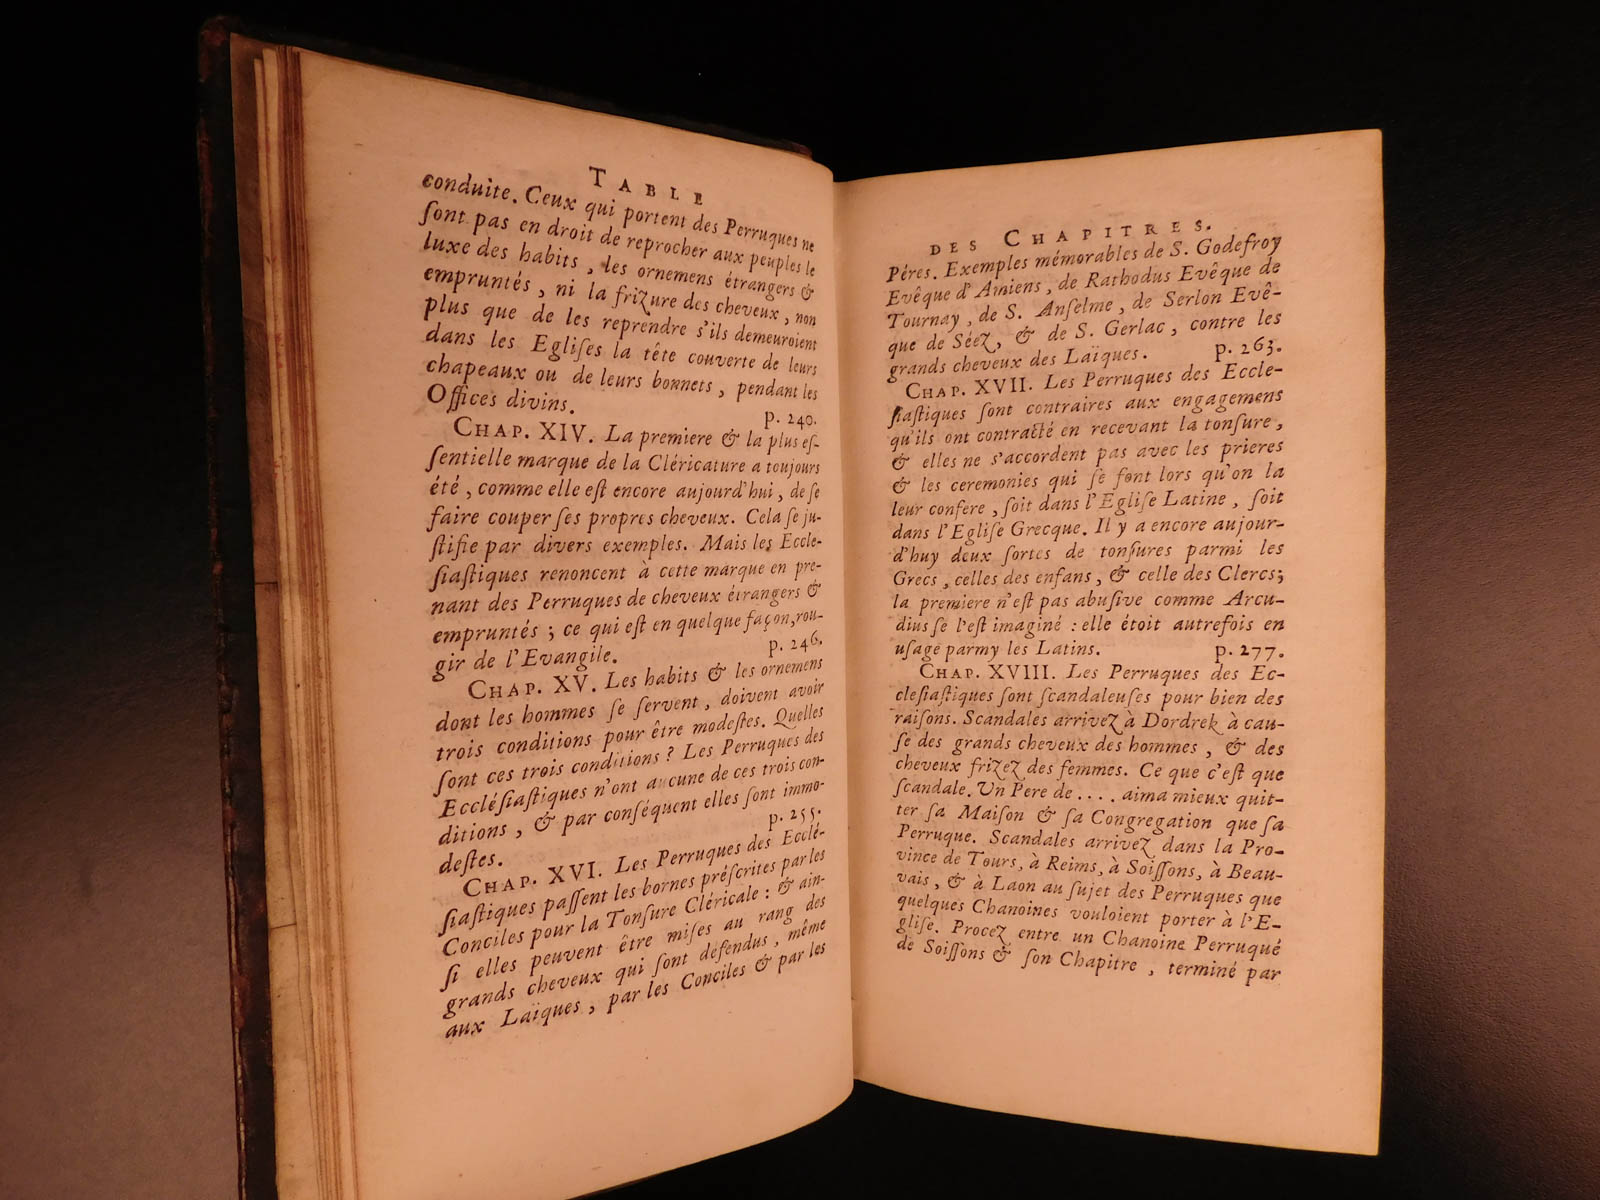 TABLE
conduite. Ceux qui portent des Perruques ne
ſont pas en droit de reprocher aux peuples le
luxe des habits, les ornemens étrangers &
empruntés, ni la frizure des cheveux, non
plus que de les reprendre s'ils demeuroient
dans les Egliſes la tête couverte de leurs
chapeaux ou de leurs bonnets, pendant les
Offices divins. p. 240.
CHAP. XIV. La premiere & la plus eſ-
ſentielle marque de la Cléricature a toujours
été, comme elle eſt encore aujourd'hui, de ſe
faire couper ſes propres cheveux. Cela ſe ju-
ſtifie par divers exemples. Mais les Eccle-
ſiaſtiques renoncent à cette marque en pre-
nant des Perruques de cheveux étrangers &
empruntés ; ce qui eſt en quelque façon, rou-
gir de l'Evangile. p. 246.
CHAP. XV. Les habits & les ornemens
dont les hommes ſe ſervent, doivent avoir
trois conditions pour être modeſtes. Quelles
ſont ces trois conditions ? Les Perruques des
Eccléſiaſtiques n'ont aucune de ces trois con-
ditions, & par conſéquent elles ſont immo-
deſtes. p. 255.
CHAP. XVI. Les Perruques des Ecclé-
ſiaſtiques paſſent les bornes préſcrites par les
Conciles pour la Tonſure Cléricale : & ain-
ſi elles peuvent être miſes au rang des
grands cheveux qui ſont défendus, même
aux Laïques, par les Conciles & par les
DES CHAPITRES.
Péres. Exemples mémorables de S. Godefroy
Evêque d'Amiens, de Rathodus Evêque de
Tournay, de S. Anſelme, de Serlon Evê-
que de Séez, & de S. Gerlac, contre les
grands cheveux des Laïques. p. 263.
CHAP. XVII. Les Perruques des Eccle-
ſiaſtiques ſont contraires aux engagemens
qu'ils ont contracté en recevant la tonſure,
& elles ne s'accordent pas avec les prieres
& les ceremonies qui ſe font lors qu'on la
leur confere, ſoit dans l'Egliſe Latine, ſoit
dans l'Egliſe Grecque. Il y a encore aujour-
d'huy deux ſortes de tonſures parmi les
Grecs, celles des enfans, & celle des Clercs;
la premiere n'eſt pas abuſive comme Arcu-
dius ſe l'eſt imaginé : elle étoit autrefois en
uſage parmy les Latins. p. 277.
CHAP. XVIII. Les Perruques des Ec-
cleſiaſtiques ſont ſcandaleuſes pour bien des
raiſons. Scandales arrivez à Dordrek à cau-
ſe des grands cheveux des hommes, & des
cheveux frizez des femmes. Ce que c'eſt que
ſcandale. Un Pere de .... aima mieux quit-
ter ſa Maiſon & ſa Congregation que ſa
Perruque. Scandales arrivez dans la Pro-
vince de Tours, à Reims, à Soiſſons, à Beau-
vais, & à Laon au ſujet des Perruques que
quelques Chanoines vouloient porter à l'E-
gliſe. Procez entre un Chanoine Perruqué
de Soiſſons & ſon Chapitre, terminé par